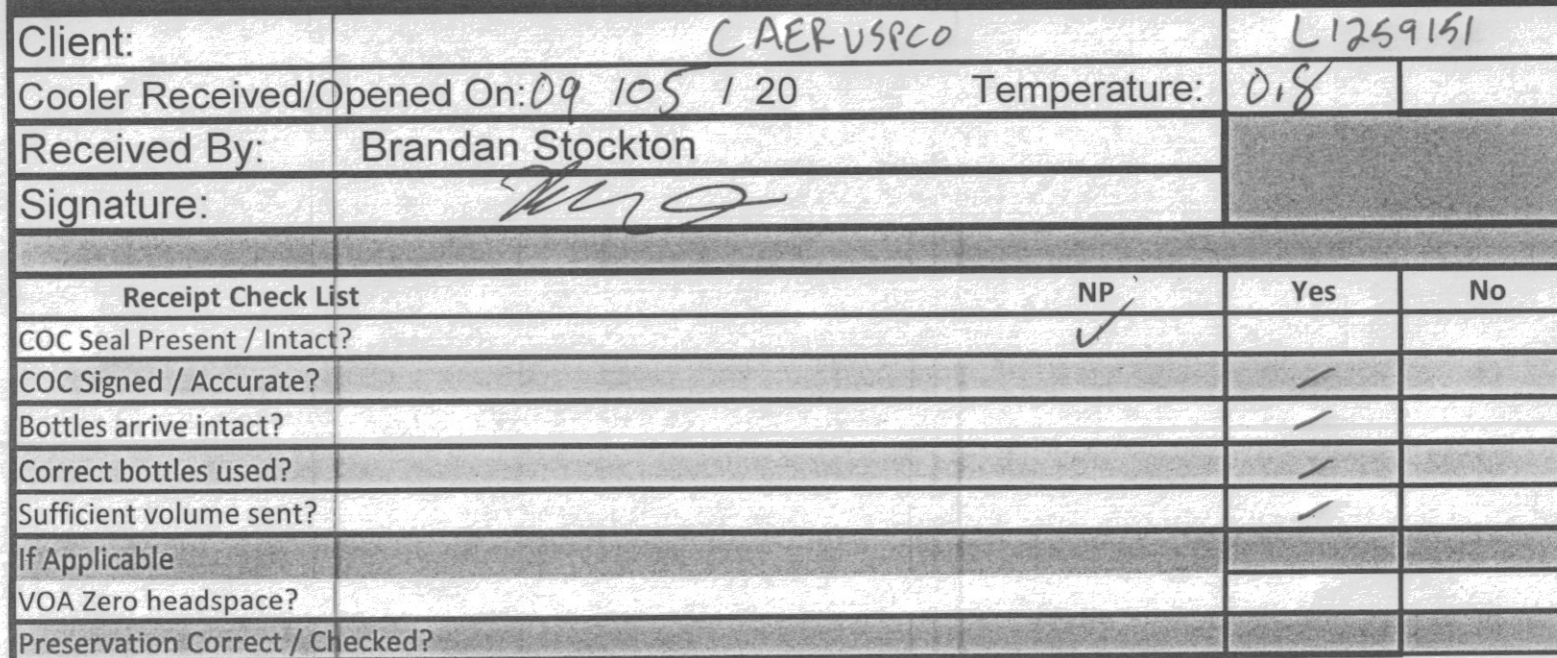 Client: CAERUSPCO L1259151
Cooler Received/Opened On: 09 / 05 / 20 Temperature: 0.8
Received By: Brandan Stockton
Signature:
Receipt Check List NP Yes No
COC Seal Present / Intact? ✓
COC Signed / Accurate?
Bottles arrive intact?
Correct bottles used?
Sufficient volume sent?
If Applicable
VOA Zero headspace?
Preservation Correct / Checked?